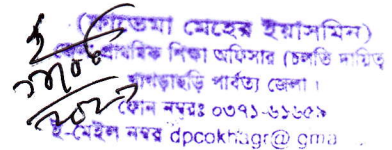 (ফাতেমা মেহের ইয়াসমিন)
প্রাথমিক শিক্ষা অফিসার (চলতি দায়িত্ব
খাগড়াছড়ি পার্বত্য জেলা ।
ফোন নম্বরঃ ০৩৭১-৬১৬৫৯
ই-মেইল নম্বর dpcokhagr@ gma